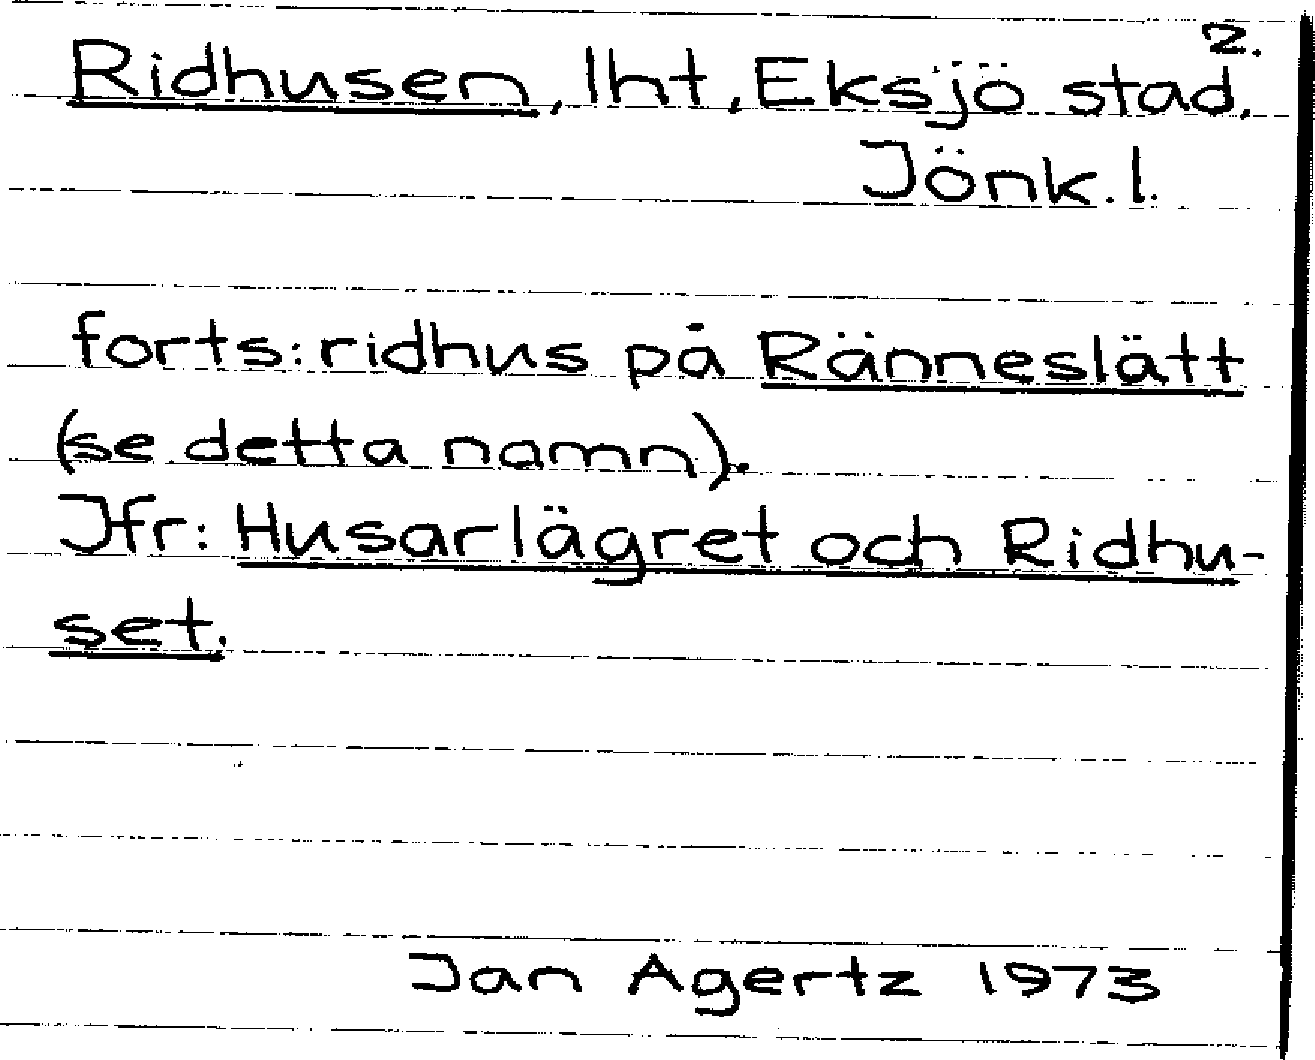 2.
Ridhusen, lht, Eksjö stad,
Jönk.l.
forts: ridhus på Ränneslätt
(se detta namn).
Jfr: Husarlägret och Ridhu-
set.
Jan Agertz 1973